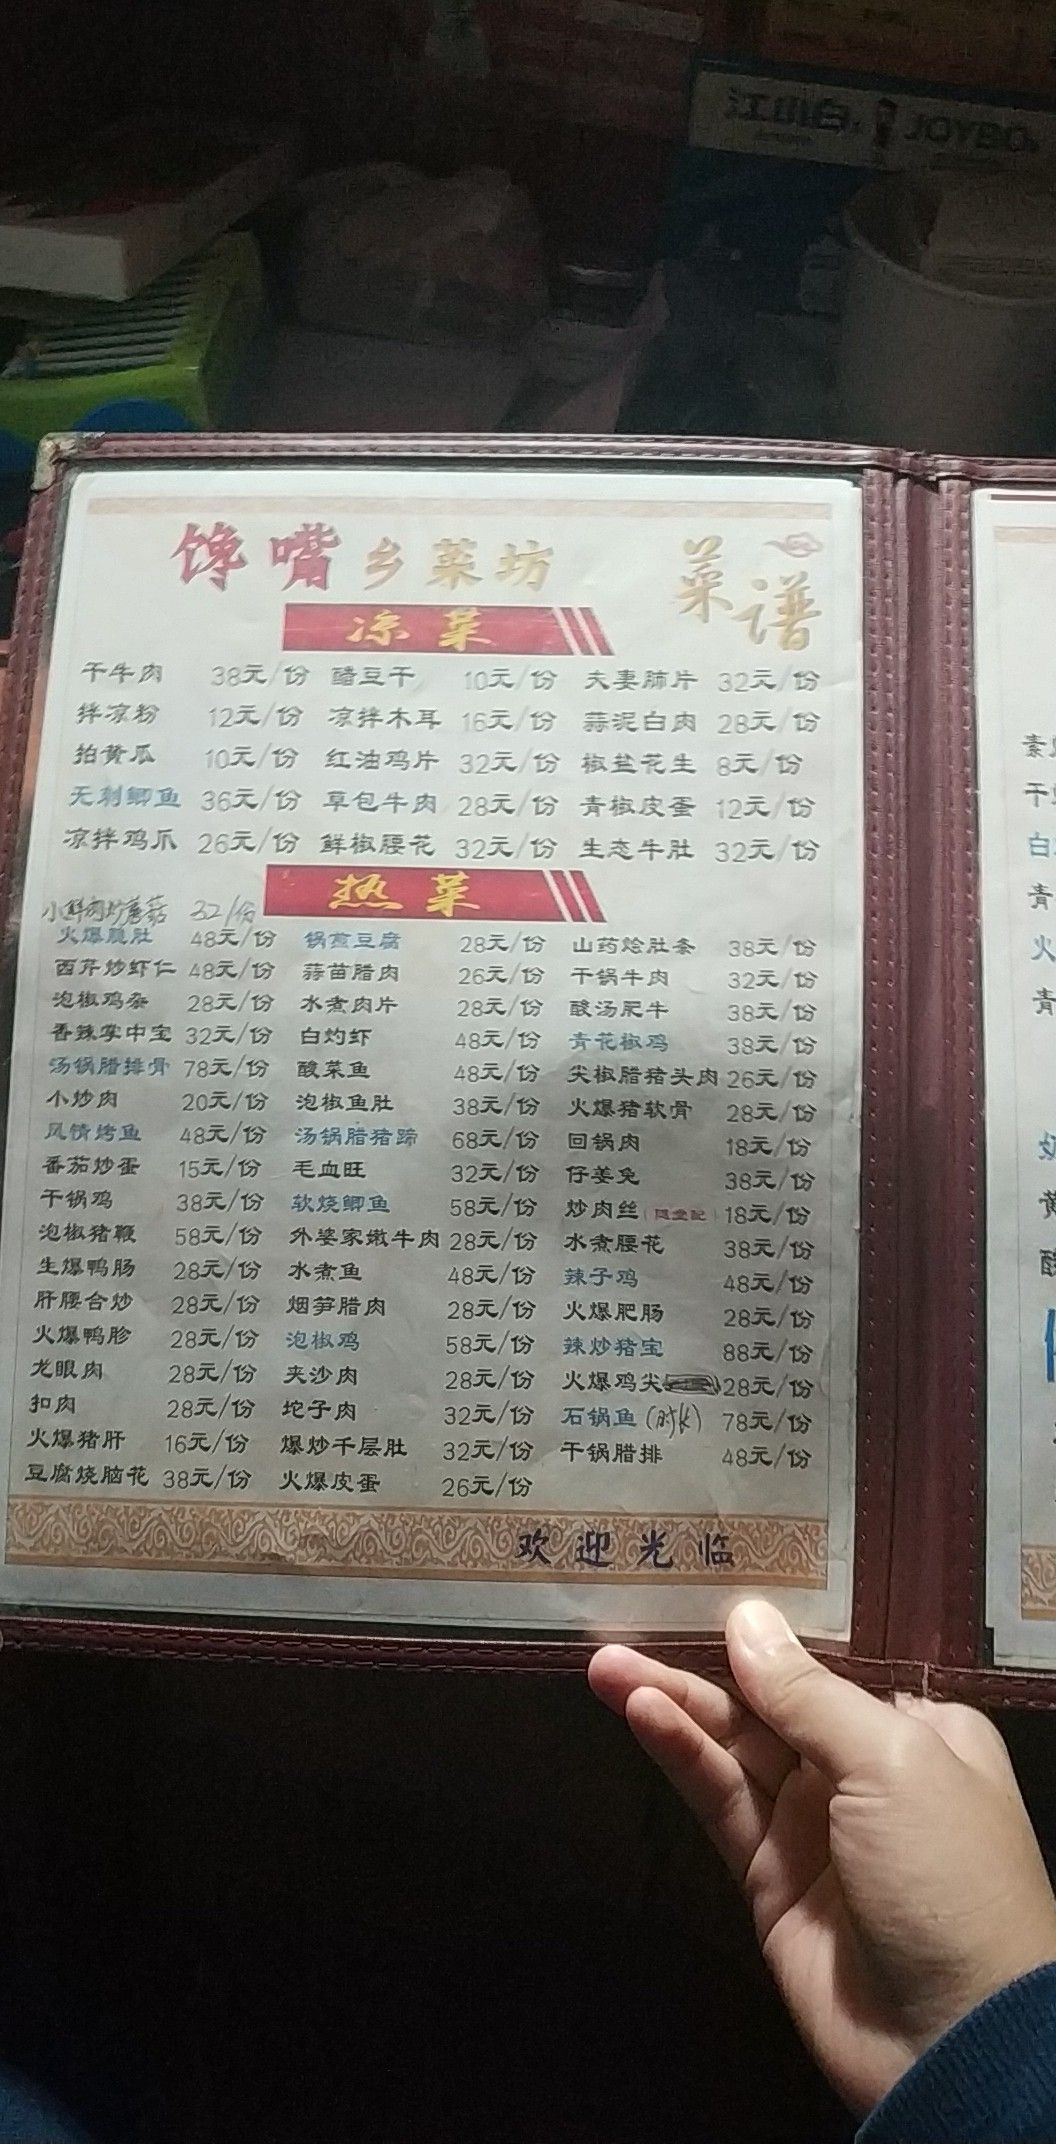 江小白 JOYBO
馋嘴乡菜坊 菜谱
凉菜
干牛肉 38元/份 醋豆干 10元/份 夫妻肺片 32元/份
拌凉粉 12元/份 凉拌木耳 16元/份 蒜泥白肉 28元/份
拍黄瓜 10元/份 红油鸡片 32元/份 椒盐花生 8元/份
无刺鲫鱼 36元/份 草包牛肉 28元/份 青椒皮蛋 12元/份
凉拌鸡爪 26元/份 鲜椒腰花 32元/份 生态牛肚 32元/份
热菜
蘑菇 32/份
火爆脆肚 48元/份 锅煎豆腐 28元/份 山药烩肚条 38元/份
西芹炒虾仁 48元/份 蒜苗腊肉 26元/份 干锅牛肉 32元/份
泡椒鸡杂 28元/份 水煮肉片 28元/份 酸汤肥牛 38元/份
香辣掌中宝 32元/份 白灼虾 48元/份 青花椒鸡 38元/份
汤锅腊排骨 78元/份 酸菜鱼 48元/份 尖椒腊猪头肉 26元/份
小炒肉 20元/份 泡椒鱼肚 38元/份 火爆猪软骨 28元/份
风情烤鱼 48元/份 汤锅腊猪蹄 68元/份 回锅肉 18元/份
番茄炒蛋 15元/份 毛血旺 32元/份 仔姜兔 38元/份
干锅鸡 38元/份 软烧鲫鱼 58元/份 炒肉丝 18元/份
泡椒猪鞭 58元/份 外婆家嫩牛肉 28元/份 水煮腰花 38元/份
生爆鸭肠 28元/份 水煮鱼 48元/份 辣子鸡 48元/份
肝腰合炒 28元/份 烟笋腊肉 28元/份 火爆肥肠 28元/份
火爆鸭胗 28元/份 泡椒鸡 58元/份 辣炒猪宝 88元/份
龙眼肉 28元/份 夹沙肉 28元/份 火爆鸡尖 28元/份
扣肉 28元/份 坨子肉 32元/份 石锅鱼(时长) 78元/份
火爆猪肝 16元/份 爆炒千层肚 32元/份 干锅腊排 48元/份
豆腐烧脑花 38元/份 火爆皮蛋 26元/份
欢迎光临